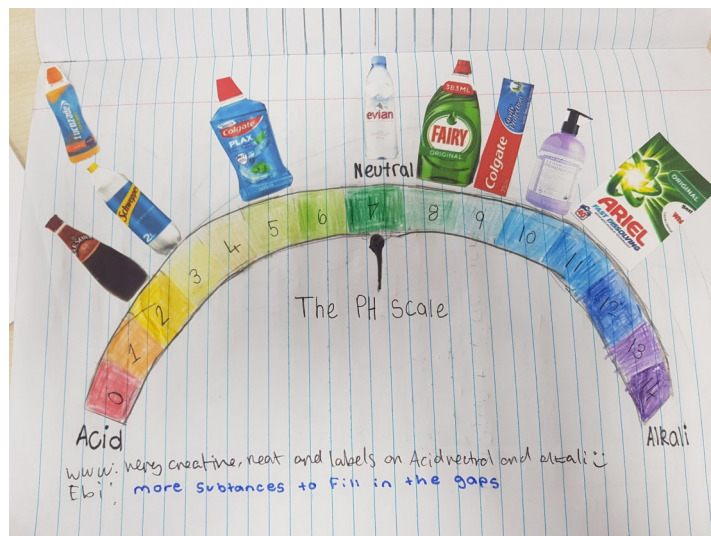 Lucozade
Colgate
PLAX
evian
383ML
FAIRY
ORIGINAL
Colgate
Schweppes
2L
ORIGINAL
ARIEL
FAST DISSOLVING
Neutral
0 1 2 3 4 5 6 7 8 9 10 11 12 13 14
The PH Scale
Acid
Alkali
www: very creative, neat and labels on Acid neutral and alkali
Ebi: more subtances to fill in the gaps